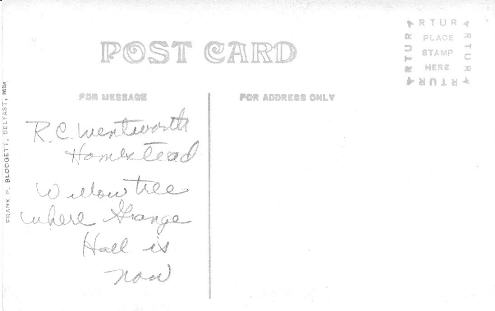 POST CARD
ARTURA
PLACE
STAMP
HERE
ARTURA
ARTURA
ARTURA
FOR MESSAGE
FOR ADDRESS ONLY
R.C. Wentworth
Homestead
Willow tree
where Grange
Hall is
now
FRANK P. BLODGETT, BELFAST,